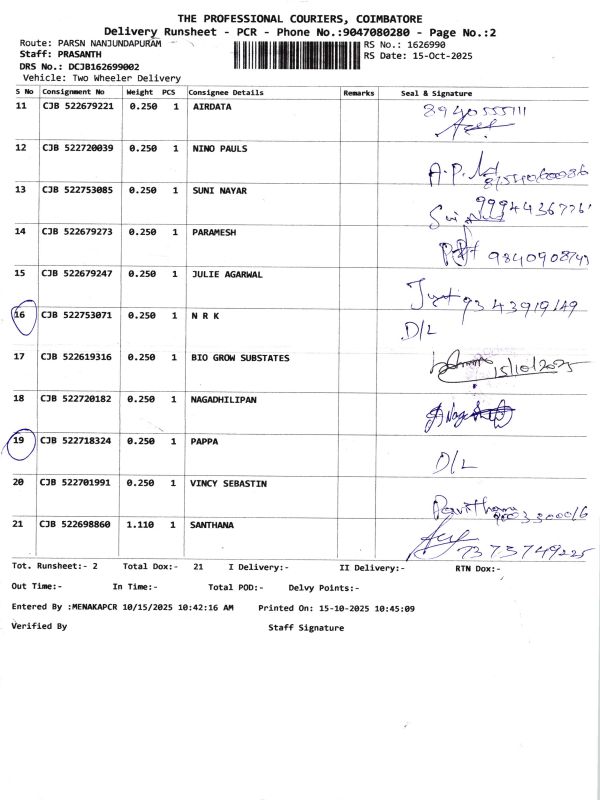 THE PROFESSIONAL COURIERS, COIMBATORE
Delivery Runsheet - PCR - Phone No.:9047080280 - Page No.:2
Route: PARSN NANJUNDAPURAM RS No.: 1626990
Staff: PRASANTH RS Date: 15-Oct-2025
DRS No.: DCJB162699002
Vehicle: Two Wheeler Delivery
S No Consignment No Weight PCS Consignee Details Remarks Seal & Signature
11 CJB 522679221 0.250 1 AIRDATA 8940555111
12 CJB 522720039 0.250 1 NINO PAULS
13 CJB 522753085 0.250 1 SUNI NAYAR
14 CJB 522679273 0.250 1 PARAMESH
15 CJB 522679247 0.250 1 JULIE AGARWAL
16 CJB 522753071 0.250 1 N R K D/L
17 CJB 522619316 0.250 1 BIO GROW SUBSTATES 15/10/2025
18 CJB 522720182 0.250 1 NAGADHILIPAN
19 CJB 522718324 0.250 1 PAPPA D/L
20 CJB 522701991 0.250 1 VINCY SEBASTIN
21 CJB 522698860 1.110 1 SANTHANA 7373749225
Tot. Runsheet:- 2 Total Dox:- 21 I Delivery:- II Delivery:- RTN Dox:-
Out Time:- In Time:- Total POD:- Delvy Points:-
Entered By :MENAKAPCR 10/15/2025 10:42:16 AM Printed On: 15-10-2025 10:45:09
Verified By Staff Signature